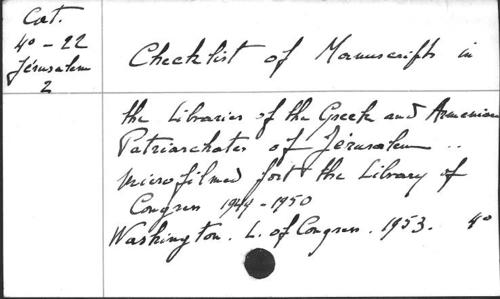 Cat.
4° - 22
Jérusalem
2
Checklist of Manuscripts in
the Libraries of the Greek and Armenian
Patriarchates of Jérusalem ..
microfilmed fort the Library of
Congress 1949-1950
Washington. L. of Congress. 1953. 4°